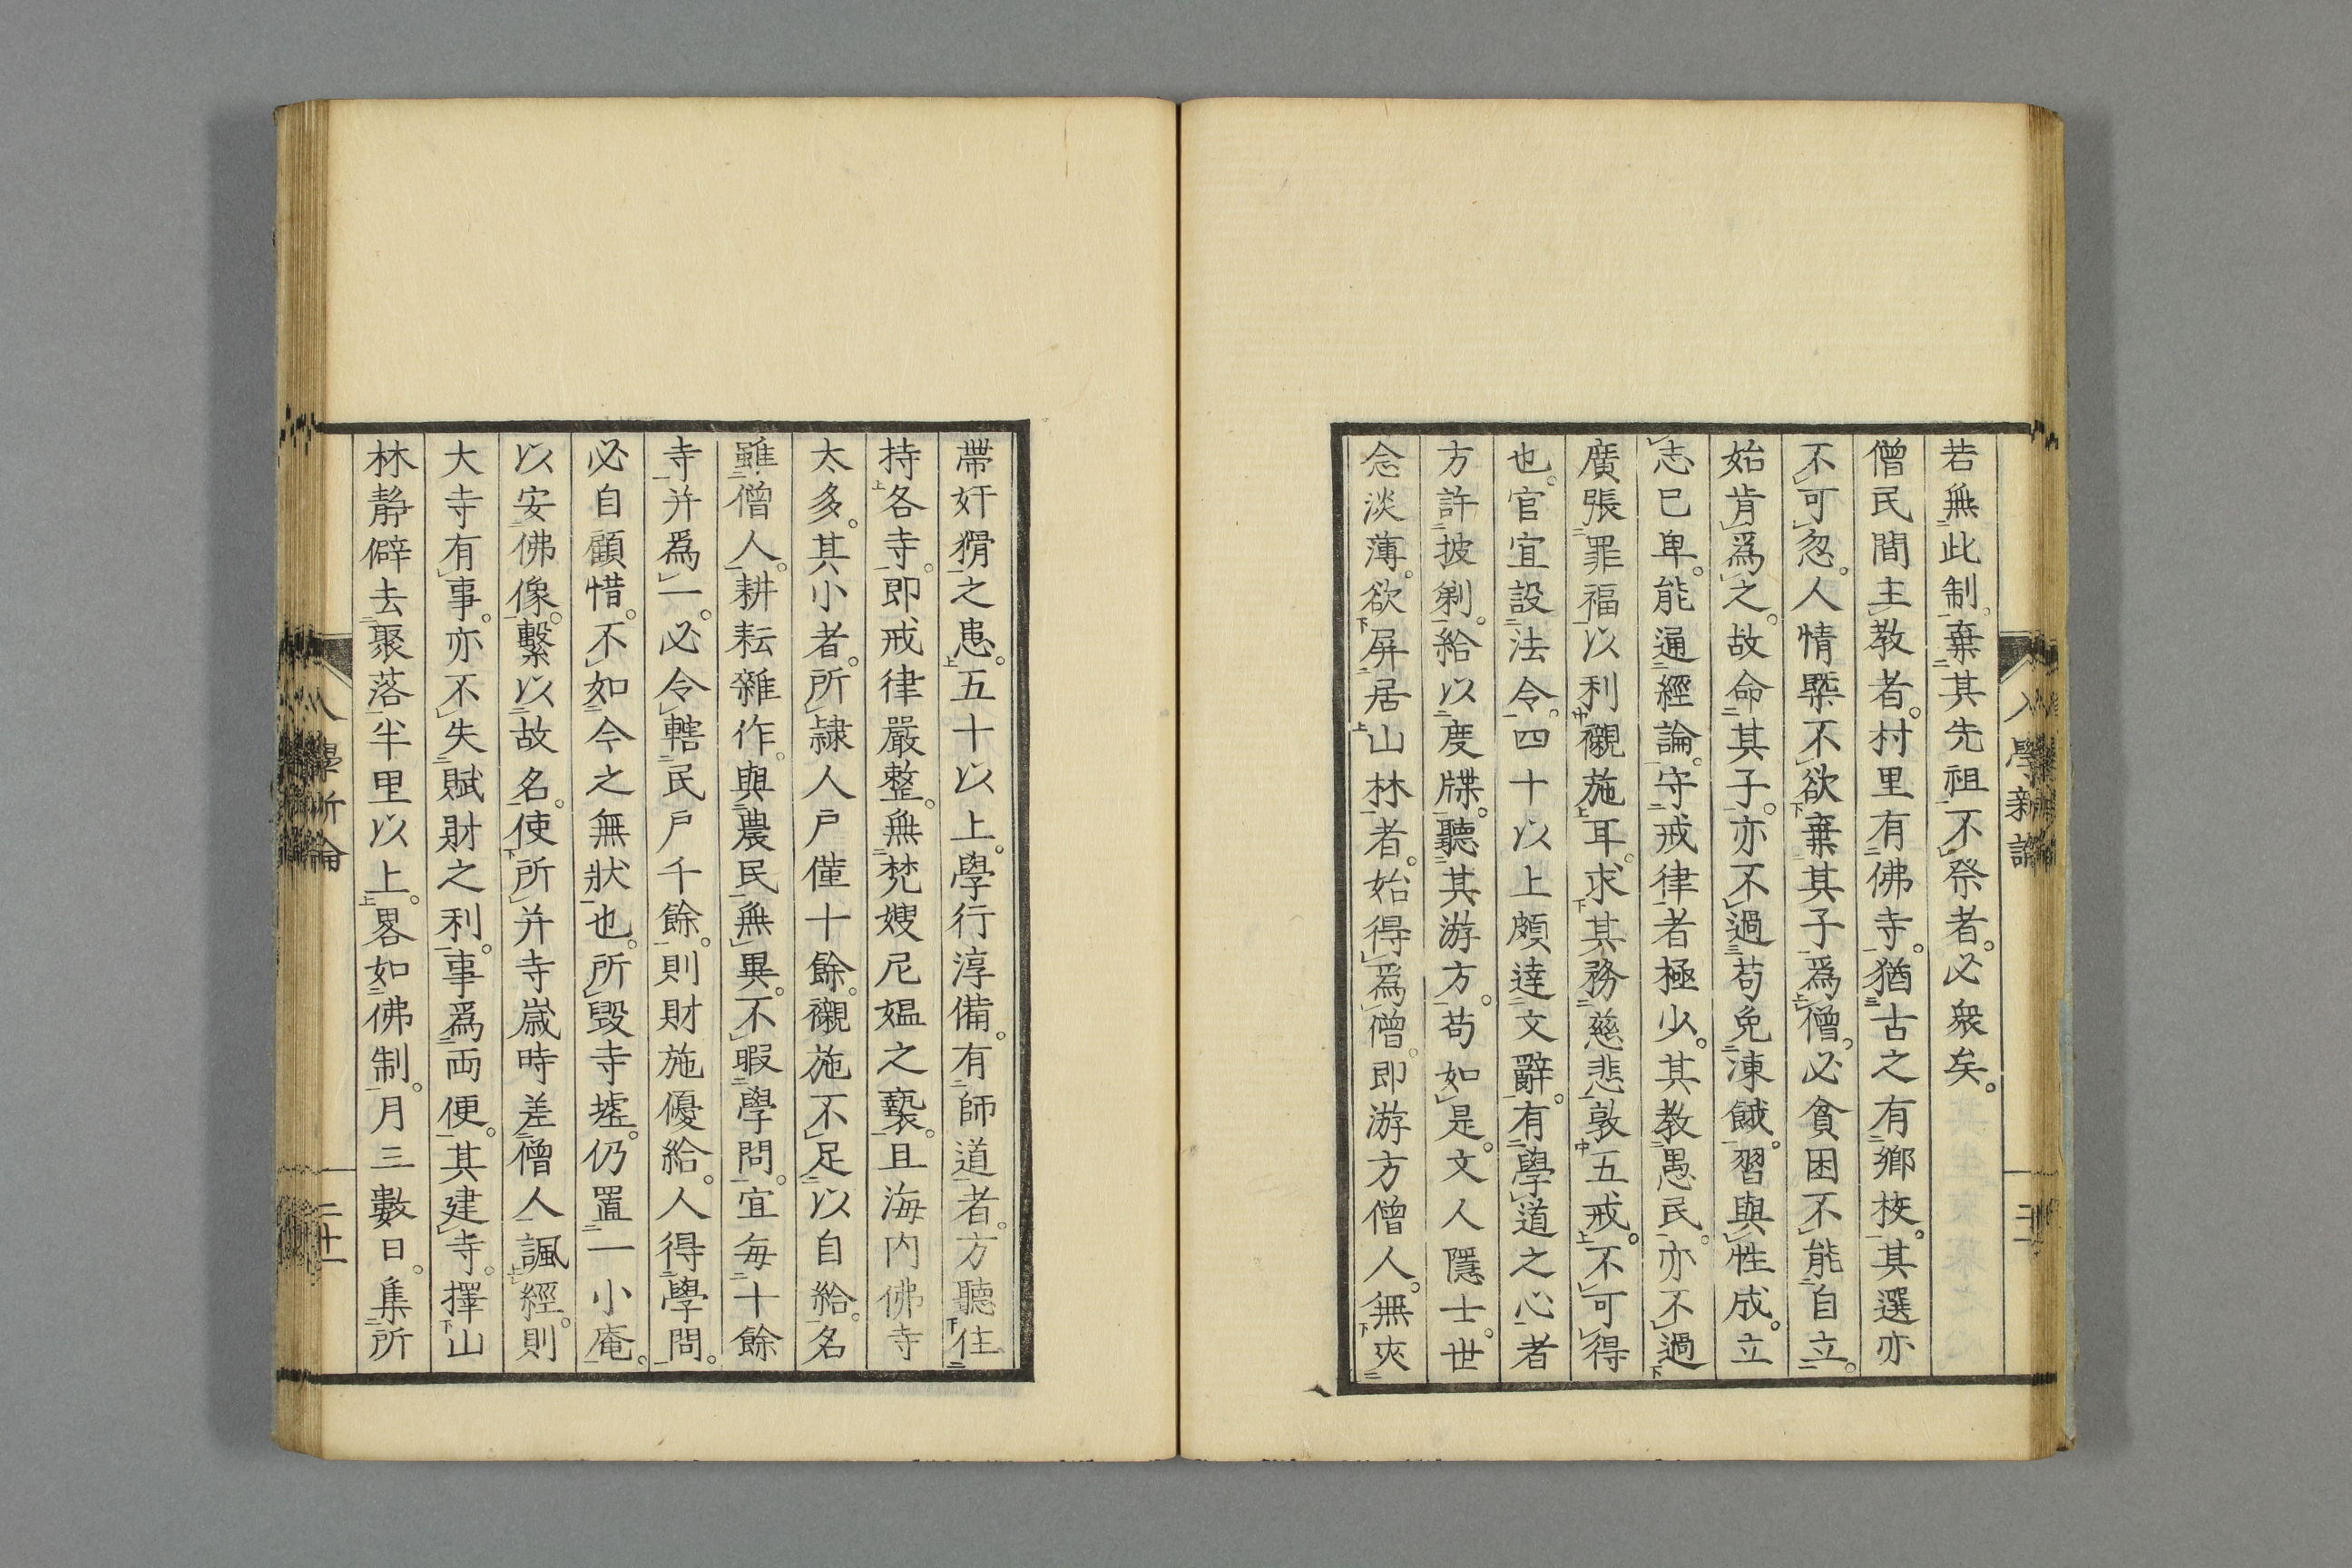 若無此制。棄其先祖不祭者。必衆矣。
僧民間主教者。村里有佛寺。猶古之有鄉校。其選亦
不可忽。人情槩不欲棄其子爲僧。必貧困不能自立。
始肯爲之。故命其子。亦不過苟免凍餓。習與性成。立
志已卑。能通經論。守戒律者極少。其教愚民。亦不過
廣張罪福。以利襯施耳。求其務慈悲敦五戒。不可得
也。官宜設法令。四十以上頗達文辭。有學道之心者
方許披剃。給以度牒。聽其游方。苟如是。文人隱士。世
念淡薄。欲屏居山林者。始得爲僧。即游方僧人。無夾
帶奸猾之患。五十以上。學行淳備。有師道者。方聽住
持各寺。即戒律嚴整。無梵嫂尼媼之褻。且海内佛寺
太多。其小者。所隷人戸僅十餘。襯施不足以自給。名
雖僧人。耕耘雜作。與農民無異。不暇學問。宜毎十餘
寺并爲一。必令轄民戸千餘。則財施優給。人得學問。
必自顧惜。不如今之無狀也。所毀寺墟。仍置一小庵。
以安佛像。繫以故名。使所并寺歳時差僧人諷經。則
大寺有事。亦不失賦財之利。事爲両便。其建寺。擇山
林靜僻去聚落半里以上。畧如佛制。月三數日。集所